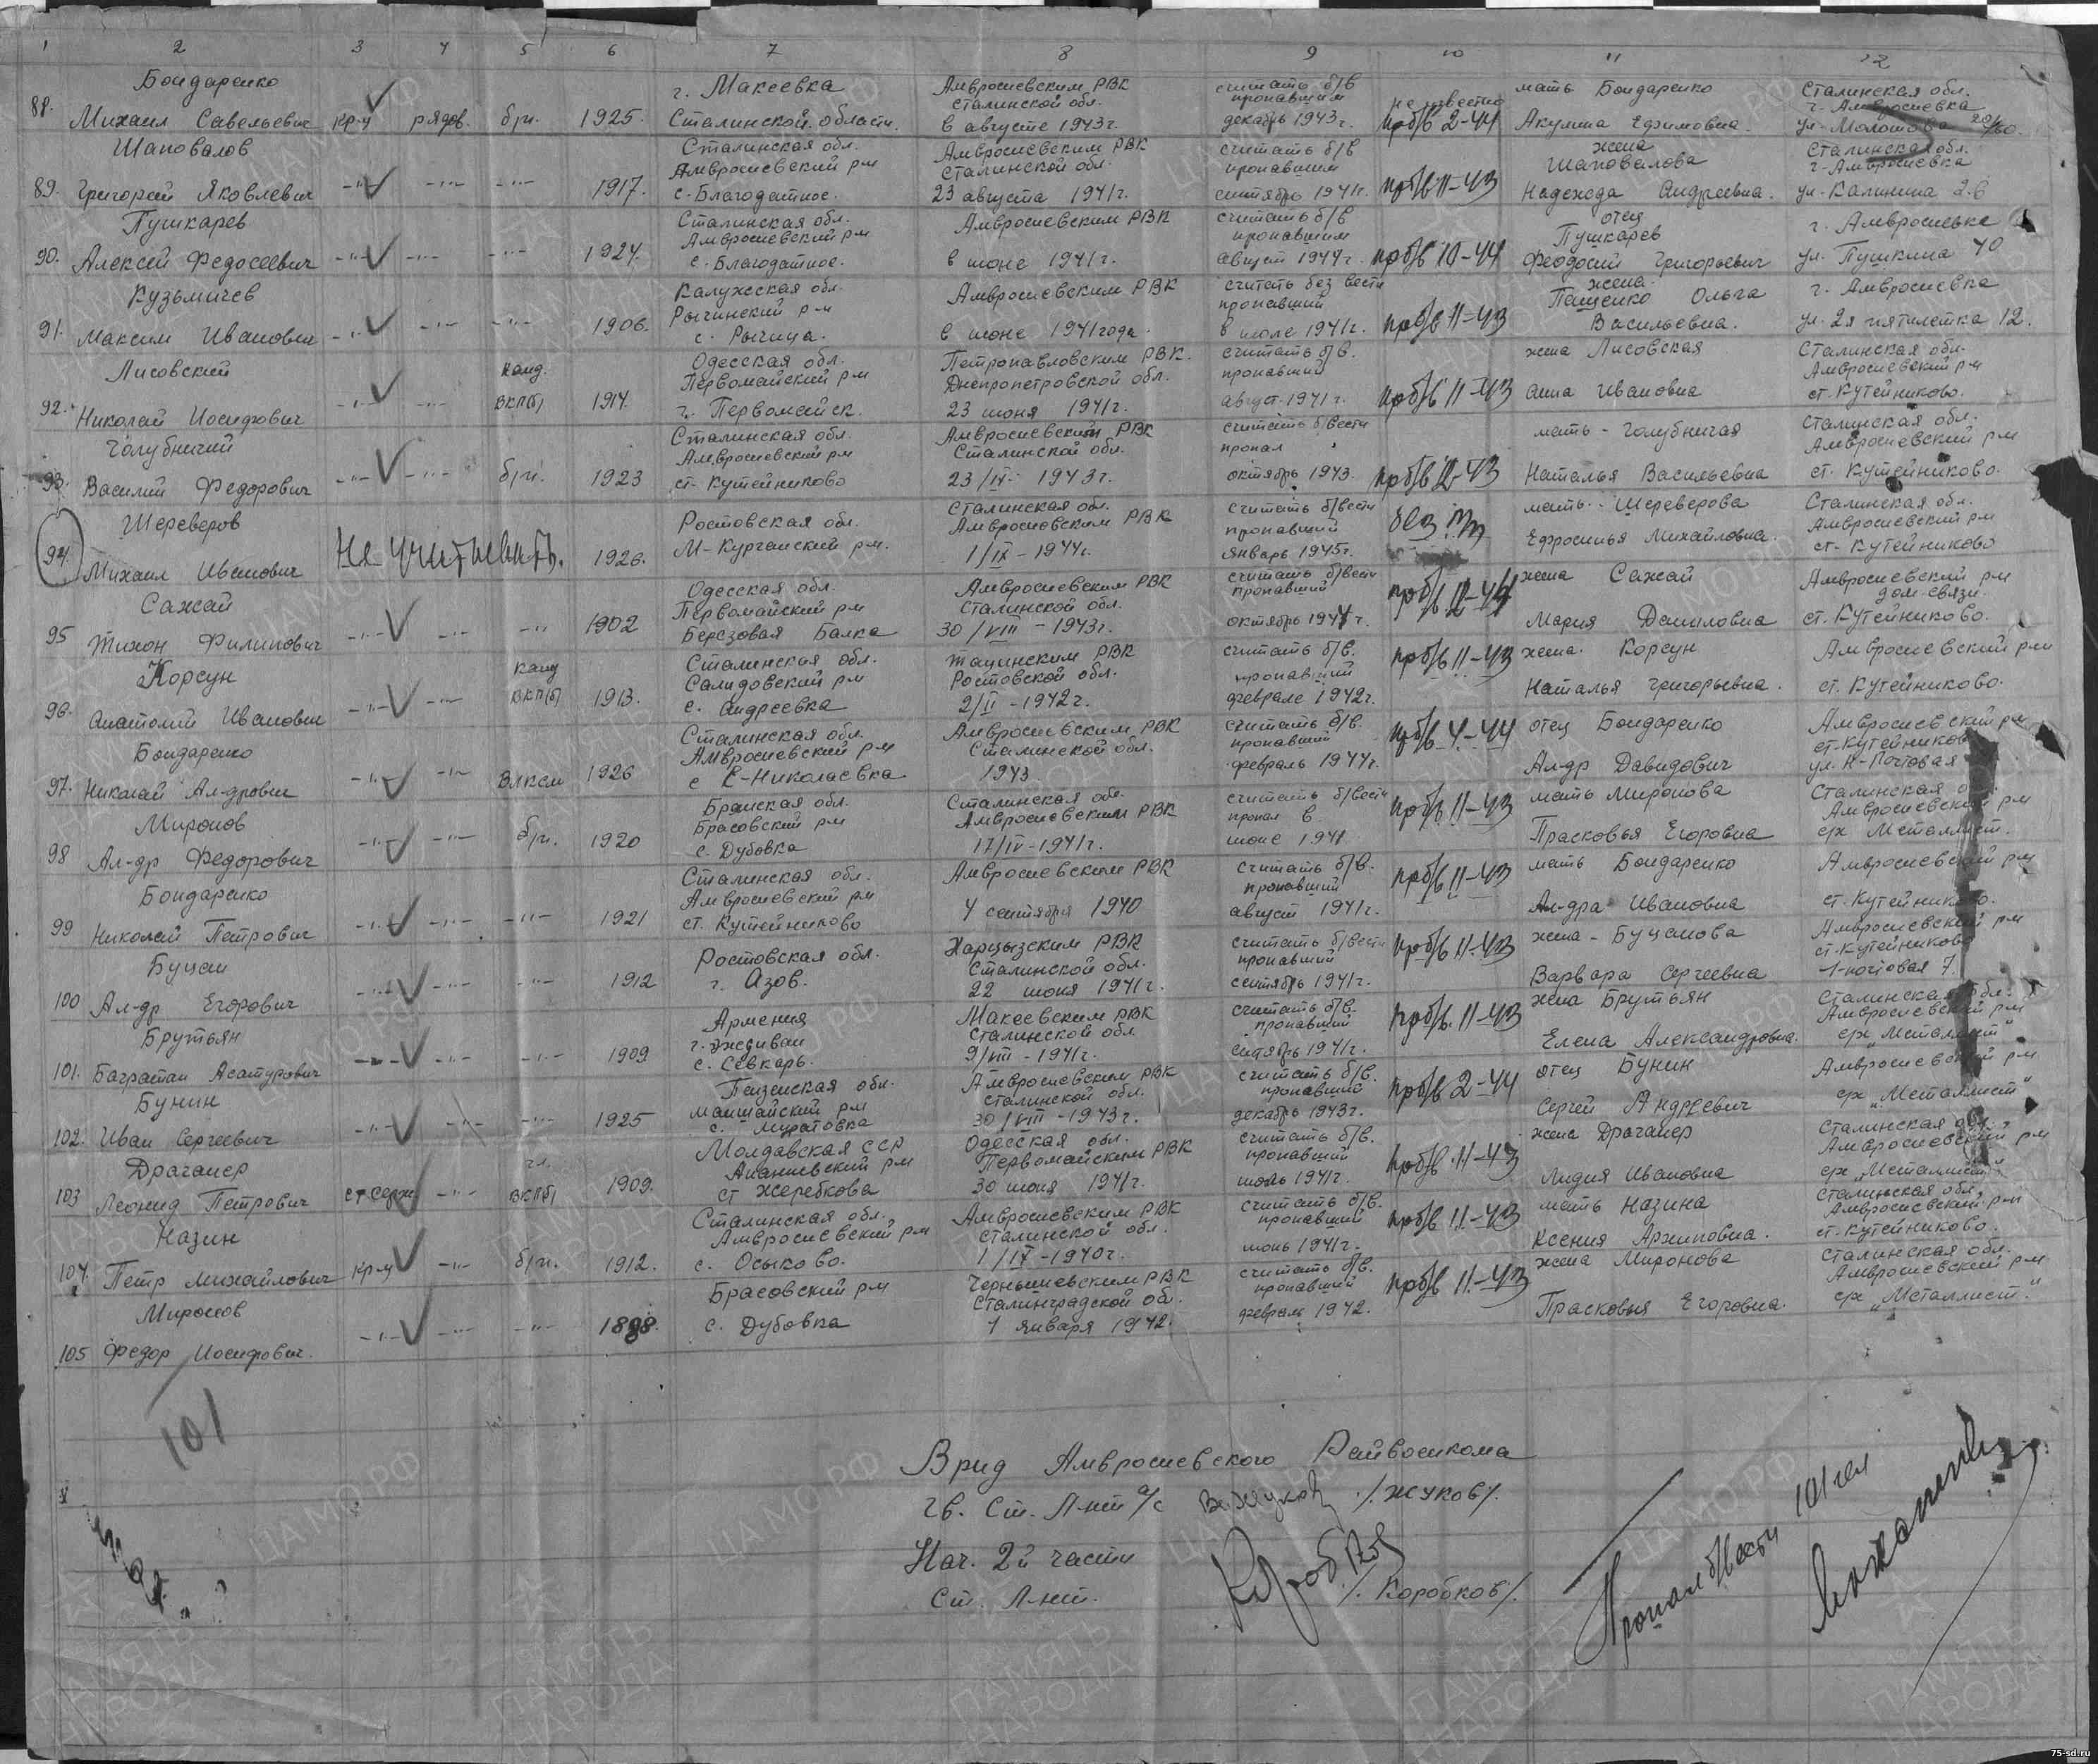 1 2 3 4 5 6 7 8 9 10 11 12
88. Бондаренко Михаил Савельевич кр-ц рядов. б/п. 1925. г. Макеевка Сталинской области. Амвросиевским РВК Сталинской обл. в августе 1943г. считать б/в пропавшим декабрь 1943г. не известно проб/в 2-44 мать Бондаренко Акулина Ефимовна. Сталинская обл. г. Амвросиевка ул. Молотова
89. Шаповалов Григорей Яковлевич -"- -"- -"- 1917. Сталинская обл. Амвросиевский р-н с. Благодатное. Амвросиевским РВК Сталинской обл. 23 августа 1941г. считать б/в пропавшим сентябрь 1941г. проб/в 11-43 жена Шаповалова Надежода Андреевна. Сталинская обл. г. Амвросиевка ул. Калинина 2.б
90. Пушкарев Алексей Федосеевич -"- -"- -"- 1924. Сталинская обл. Амвросиевский р-н с. Благодатное. Амвросиевским РВК в июне 1941г. считать б/в пропавшим август 1944г. проб/в 10-44 отец Пушкарев Феодосий Григорьевич г. Амвросиевка ул. Пушкина 40
91. Кузьмичев Максим Иванович -"- -"- -"- 1906. Калужская обл. р-н с. Амвросиевским РВК в июне 1941 года. считать без вести пропавший в июле 1941г. проб/в 11-43 жена. Пащенко Ольга Васильевна. г. Амвросиевка ул. 2я пятилетка 12.
92. Лисовский Николай Иосифович -"- -"- канд. ВКП(б) 1914. Одесская обл. Первомайский р-н г. Первомайск. Петропавловским РВК. Днепропетровской обл. 23 июня 1941г. считать б/в. пропавший август 1941г. проб/в 11-43 жена Лисовская Анна Ивановна Сталинская обл. Амвросиевский р-н ст. Кутейниково.
93. Голубничий Василий Федорович -"- -"- б/п. 1923 Сталинская обл. Амвросиевский р-н ст. Кутейниково Амвросиевским РВК Сталинской обл. 23/IX 1943г. считать б/вести пропал октябрь 1943. проб/в 12-43 мать - Голубничая Наталья Васильевна Сталинская обл. Амвросиевский р-н ст. Кутейниково.
94. Шереверов Михаил Иванович Не учитывать. 1926. Ростовская обл. М-Курганский р-н. Сталинская обл. Амвросиевским РВК 1/IX - 1944г. считать б/вести пропавший январь 1945г. без п/п мать Шереверова Ефросинья Михайловна. Сталинская обл. Амвросиевский р-н ст. Кутейниково
95 Сажай Тихон Филипович -"- -"- -"- 1902 Одесская обл. Первомайский р-н Березовая Балка Амвросиевским РВК Сталинской обл. 30/VIII - 1943г. считать б/вести пропавший октябрь 1944г. проб/в 12-44 жена Сажай Мария Даниловна Амвросиевский р-н дом связи. ст. Кутейниково.
96. Корсун Анатолий Иванович -"- -"- канд ВКП(б) 1913. Сталинская обл. Салидовский р-н с. Андреевка Тацинским РВК Ростовской обл. 2/II - 1942г. считать б/в. пропавший феврале 1942г. проб/в 11-43 жена. Корсун Наталья Григорьевна. Амвросиевский р-н ст. Кутейниково.
97. Бондаренко Николай Ал-дрович -"- -"- ВЛКСМ 1926 Сталинская обл. Амвросиевский р-н с Е-Николаевка Амвросиевским РВК Сталинской обл. 1943 считать б/в. пропавший февраль 1944г. проб/в 4-44 отец Бондаренко Ал-др Давидович Амвросиевский р-н ст. Кутейников ул. К-Почтовая
98 Миронов Ал-др Федорович -"- -"- б/п. 1920 Брянская обл. Брасовский р-н с. Дубовка Сталинская обл. Амвросиевским РВК 17/IV-1941г. считать б/вести пропал в июне 1941 проб/в 11-43 мать Миронова Прасковья Егоровна Сталинская Амвросиевский р-н с/х Металлист.
99 Бондаренко Николай Петрович -"- -"- -"- 1921 Сталинская обл. Амвросиевский р-н ст. Кутейниково Амвросиевским РВК 4 сентября 1940 считать б/в. пропавший август 1941г. проб/в 11-43 мать Бондаренко Ал-дра Ивановна Амвросиевский р-н ст. Кутейниково.
100 Буцан Ал-др Егорович -"- -"- -"- 1912 Ростовская обл. г. Азов. Харцызским РВК Сталинской обл. 22 июня 1941г. считать б/вести пропавший сентябрь 1941г. проб/в 11-43 жена - Буцанова Варвара Сергеевна Амвросиевский р-н ст. Кутейниково 1-почтовая 7.
101. Брутьян Багратан Асатурович -"- -"- -"- 1909 Армения с. Севкарь. Макеевским РВК Сталинской обл 9/VIII - 1941г. считать б/в. пропавший 1941г. проб/в. 11-43 жена Брутьян Елена Александровна. Сталинская обл. Амвросиевский р-н с/х „Металлист"
102. Бунин Иван Сергеевич -"- -"- -"- 1925 Пензенская обл. р-н с. Муратовка Амвросиевским РВК Сталинской обл. 30/VIII - 1943г. считать б/в. пропавший декабрь 1943г. проб/в 2-44 отец Бунин Сергей Андреевич Амвросиевский р-н с/х „Металлист"
103 Драганер Леонид Петрович ст серж -"- чл. ВКП(б) 1909. Молдавская ССР Ананиевский р-н ст Жеребкова Одесская обл. Первомайским РВК 30 июня 1941г. считать б/в. пропавший июль 1941г. проб/в. 11-43 жена Драганер Лидия Ивановна Сталинская обл. Амвросиевский р-н с/х „Металлист"
104. Назин Петр Михайлович кр-ц -"- б/п. 1912. Сталинская обл. Амвросиевский р-н с. Осыково. Амвросиевским РВК Сталинской обл. 1/IX-1940г. считать б/в. пропавший июнь 1941г. проб/в 11-43 мать Назина Ксения Архиповна. Сталинская обл. Амвросиевский р-н ст. Кутейниково.
105 Миронов Федор Иосифович. -"- -"- -"- 1898. Брасовский р-н с. Дубовка Чернышевским РВК Сталинградской об. 1 января 1942. считать б/в. пропавший февраль 1942. проб/в 11-43 жена Миронова Прасковья Егоровна. Сталинская обл. Амвросиевский р-н с/х „Металлист".
101
Врид Амвросиевского Райвоенкома
Гв. Ст. Л-нт а/с /.Жуков/.
Нач. 2й части
Ст. Л-нт. /.Коробков/.
Пропал б/вести 101 чел
ЦА МО РФ
ПАМЯТЬ НАРОДА
75-sd.ru